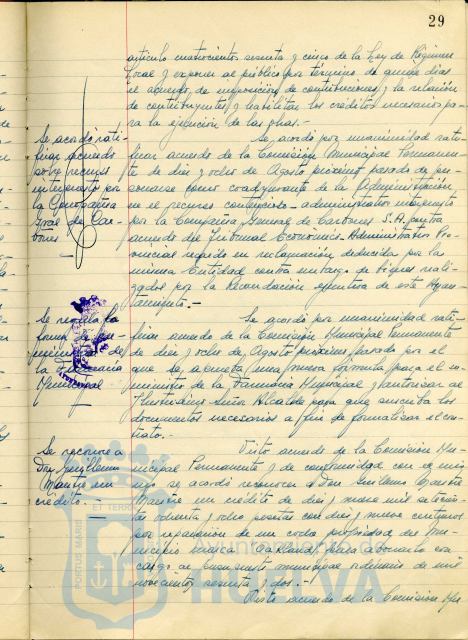 29
artículo cuatrocientos sesenta y cinco de la Ley de Régimen
Local y exponer al público por término de quince días
el acuerdo de imposición de contribuciones y la relación
de contribuyentes y habilitar los créditos necesarios pa-
ra la ejecución de las obras.-
Se acordó rati-
ficar acuerdo
sobre recurso
interpuesto por
la Compañía
Gral de Car-
bones
Se acordó por unanimidad rati-
ficar acuerdo de la Comisión Municipal Permanen-
te de diez y ocho de Agosto próximo pasado de per-
sonarse como coadyuvante de la Administración
en el recurso contencioso-administrativo interpuesto
por la Compañía General de Carbones S.A. contra
acuerdo del Tribunal Económico-Administrativo Pro-
vincial recaído en reclamación deducida por la
misma Entidad contra embargo de bienes reali-
zados por la Recaudación ejecutiva de este Ayun-
tamiento.-
Se
la
la Farmacia
Municipal
Se acordó por unanimidad rati-
ficar acuerdo de la Comisión Municipal Permanente
de diez y ocho de Agosto próximo pasado por el
que se aprueba una nueva fórmula para el su-
ministro de la Farmacia Municipal y autorizar al
Ilustrísimo Señor Alcalde para que suscriba los
documentos necesarios a fin de formalizar el con-
trato.-
Se reconoce a
Don Guillermo
Mautre un
crédito.-
Visto acuerdo de la Comisión Mu-
nicipal Permanente y de conformidad con el mis-
mo se acordó reconocer a Don Guillermo
un crédito de diez y nueve mil setecien-
tas ochenta y ocho pesetas con diez y nueve céntimos
por reparación de un coche propiedad del Mu-
nicipio marca Oakland, para abonarlo con
cargo al presupuesto municipal ordinario de mil
novecientos sesenta y dos.-
Visto acuerdo de la Comisión Mu-
PORTUS MARIS ET TERRAE
Ayuntamiento de
HUELVA